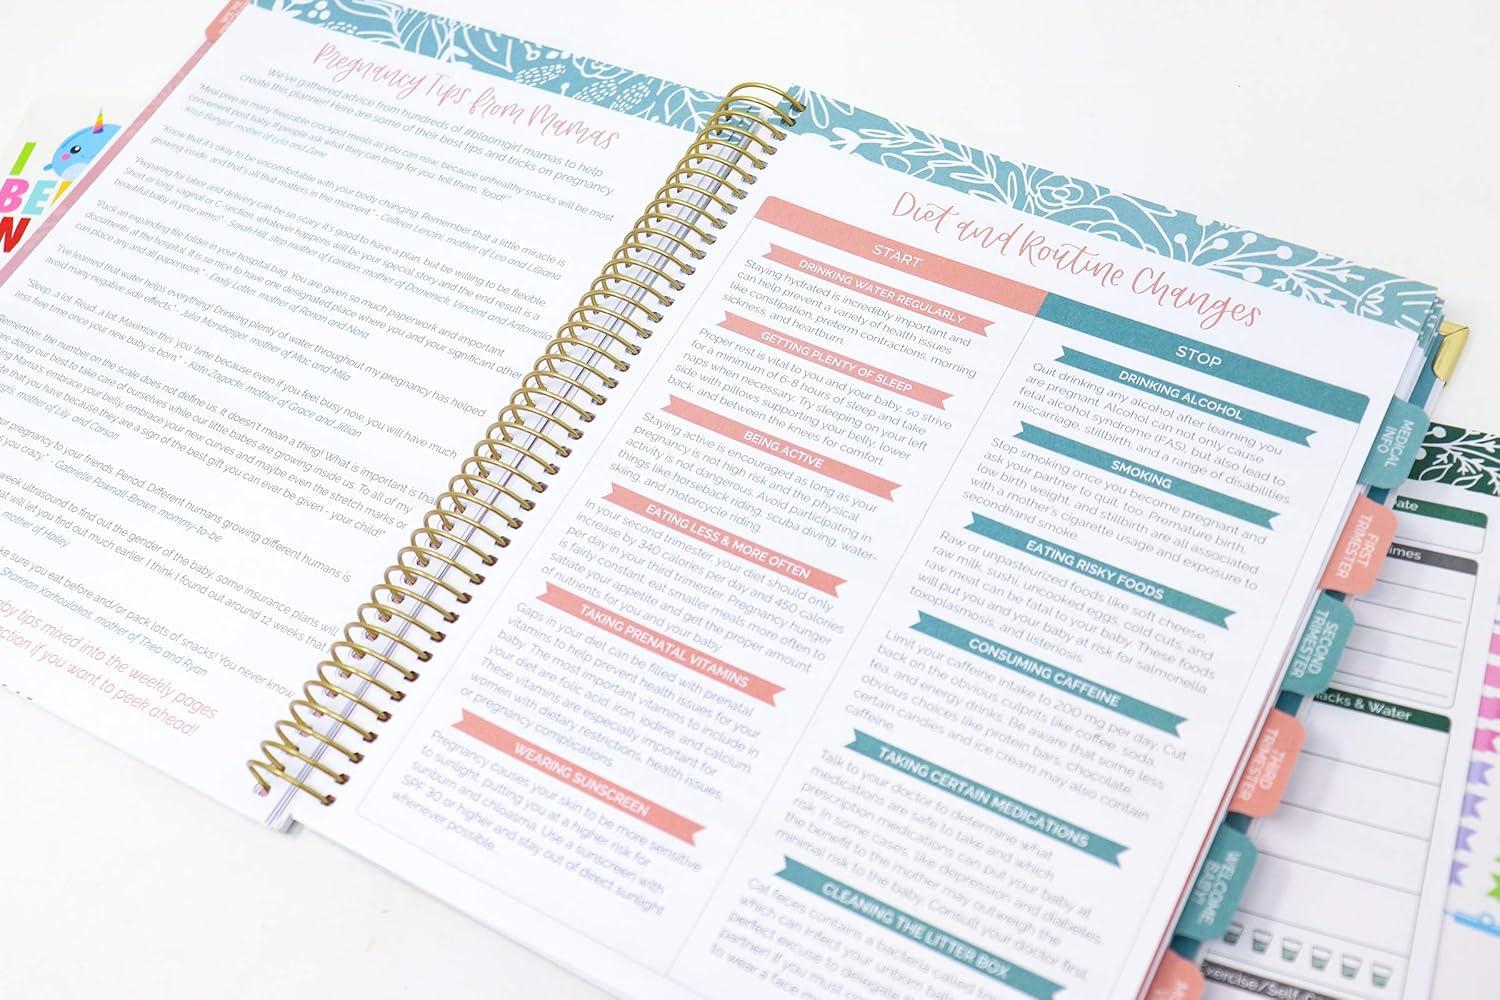 Pregnancy Tips from Mamas
We've gathered advice from hundreds of #bloomgirl mamas to help
create this planner! Here are some of their best tips and tricks on pregnancy.
"Meal prep as many freezable crockpot meals as you can now, because unhealthy snacks will be most
convenient post baby. If people ask what they can bring for you, tell them, 'food!'"
"Know that it's okay to be uncomfortable with your body changing. Remember that a little miracle is
growing inside, and that's all that matters in the moment." - Colleen Lenzini, mother of Leo and Lilliana
"Preparing for labor and delivery can be so scary. It's good to have a plan, but be willing to be flexible.
Short or long, vaginal or C-section, whatever happens, will be your special story and the end result is a
beautiful baby in your arms!" - Sarah Hill, step mother of Landon, mother of Domenick, Vincent and Antonella
"Pack an expanding file folder in your hospital bag. You are given so much paperwork and important
documents at the hospital. It is so nice to have one designated place where you and your significant other
can place any and all paperwork." - Emily Lotter, mother of Ronan and Nora
"I've learned that water helps everything! Drinking plenty of water throughout my pregnancy has helped
avoid many negative side effects." - Julia Morsberger, mother of Mac and Mila
"Sleep...a lot. Read...a lot. Maximize this you time because even if you feel busy now, you will have much
less free time once your new baby is born." - Kate Zagacki, mother of Grace and Jillian
Remember, the number on the scale does not define us. It doesn't mean a thing! What is important is that
are doing our best to take care of ourselves while our little babes are growing inside us. To all of my
Mamas, embrace your belly, embrace your new curves and maybe even the stretch marks or
that you have because they are a sign of the best gift you can ever be given - your child!"
mother of Lily and Carson
your pregnancy to your friends. Period. Different humans growing different humans is
you crazy." - Gabrielle Pownall-Brown, mommy-to-be
week ultrasound to find out the gender of the baby, some insurance plans will
that will let you find out much earlier. I think I found out around 12 weeks that
mother of Hailey
sure you eat before and/or pack lots of snacks! You never know
Shannon Xarhoulakos, mother of Theo and Ryan
tips mixed into the weekly pages
if you want to peek ahead!
Diet and Routine Changes
START
DRINKING WATER REGULARLY
Staying hydrated is incredibly important and
can help prevent a variety of health issues
like constipation, preterm contractions, morning
sickness, and heartburn.
GETTING PLENTY OF SLEEP
Proper rest is vital to you and your baby, so strive
for a minimum of 6-8 hours of sleep and take
naps when necessary. Try sleeping on your left
side with pillows supporting your belly, lower
back, and between the knees for comfort.
BEING ACTIVE
Staying active is encouraged as long as your
pregnancy is not high risk and the physical
activity is not dangerous. Avoid participating in
things like horseback riding, scuba diving, water-
skiing, and motorcycle riding.
EATING LESS & MORE OFTEN
In your second trimester, your diet should only
increase by 340 calories per day and 450 calories
per day in your third trimester. Pregnancy hunger
is fairly constant, eat smaller meals more often to
satiate your appetite and get the proper amount
of nutrients for you and your baby.
TAKING PRENATAL VITAMINS
Gaps in your diet can be filled with prenatal
vitamins to help prevent health issues for your
baby. The most important vitamins to include in
your diet are folic acid, iron, iodine, and calcium.
These vitamins are especially important for
women with dietary restrictions, health issues,
or pregnancy complications.
WEARING SUNSCREEN
Pregnancy causes your skin to be more sensitive
to sunlight, putting you at a higher risk for
sunburn and chloasma. Use a sunscreen with
SPF 30 or higher and stay out of direct sunlight
whenever possible.
STOP
DRINKING ALCOHOL
Quit drinking any alcohol after learning you
are pregnant. Alcohol can not only cause
fetal alcohol syndrome (FAS), but also lead to
miscarriage, stillbirth, and a range of disabilities.
SMOKING
Stop smoking once you become pregnant and
ask your partner to quit, too. Premature birth,
low birth weight, and stillbirth are all associated
with a mother's cigarette usage and exposure to
secondhand smoke.
EATING RISKY FOODS
Raw or unpasteurized foods like soft cheese,
raw milk, sushi, uncooked eggs, cold cuts, and
raw meat can be fatal to your baby. These foods
will put you and your baby at risk for salmonella,
toxoplasmosis, and listeriosis.
CONSUMING CAFFEINE
Limit your caffeine intake to 200 mg per day. Cut
back on the obvious culprits like coffee, soda,
tea, and energy drinks. Be aware that some less
obvious choices like protein bars, chocolate,
certain candies and ice cream may also contain
caffeine.
TAKING CERTAIN MEDICATIONS
Talk to your doctor to determine what
medications are safe to take and which
prescription medications can put your baby at
risk. In some cases, like depression and diabetes,
the benefit to the mother may outweigh the
minimal risk to the baby. Consult your doctor first.
CLEANING THE LITTER BOX
Cat feces contains a bacteria called
which can infect your unborn
perfect excuse to delegate
partner! If you must
to wear a face
MEDICAL
INFO
FIRST
TRIMESTER
SECOND
TRIMESTER
THIRD
TRIMESTER
WELCOME
BABY!
& Water